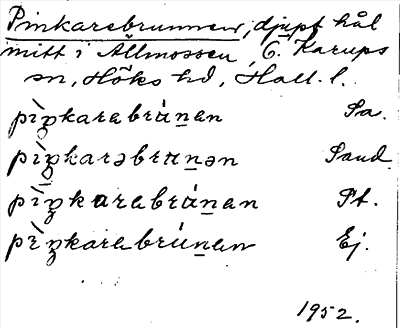 Pinkarebrunnen, djupt hål
mitt i Allmossen, Ö. Karups
sn, Höks hd, Hall. l.
pìŋkarabrànan Sa.
pìŋkarəbranən Sand.
pìŋkarabrànan Pt.
pìŋkarabrùnan Ej.
1952.